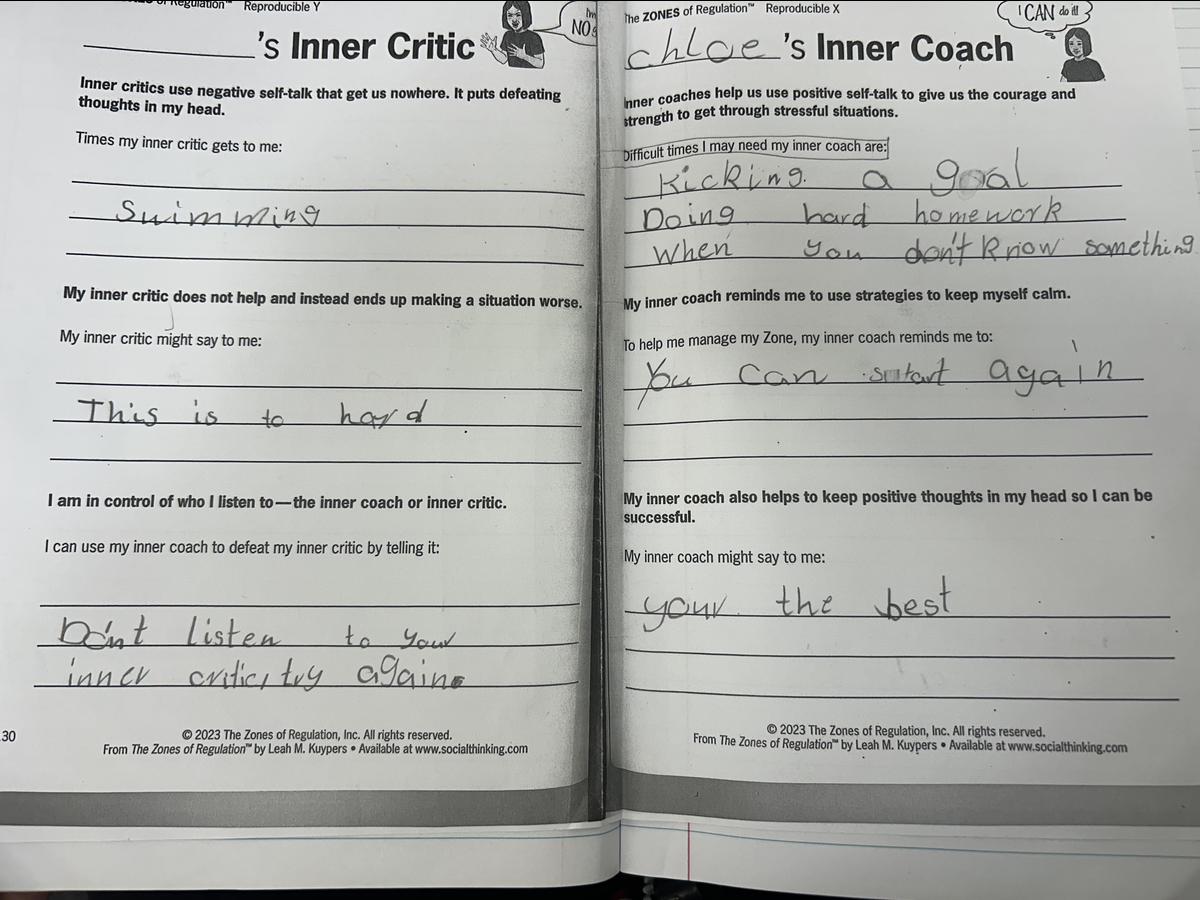 Regulation™ Reproducible Y
'S Inner Critic
NO
Inner critics use negative self-talk that get us nowhere. It puts defeating
thoughts in my head.
Times my inner critic gets to me:
Swimming
My inner critic does not help and instead ends up making a situation worse.
My inner critic might say to me:
This is to hard
I am in control of who I listen to—the inner coach or inner critic.
I can use my inner coach to defeat my inner critic by telling it:
Don't listen to your
inner critic, try again.
30
© 2023 The Zones of Regulation, Inc. All rights reserved.
From The Zones of Regulation™ by Leah M. Kuypers • Available at www.socialthinking.com
The ZONES of Regulation™ Reproducible X
I CAN do it!
chloe 'S Inner Coach
Inner coaches help us use positive self-talk to give us the courage and
strength to get through stressful situations.
Difficult times I may need my inner coach are:
Kicking a goal
Doing hard homework
When you don't know something
My inner coach reminds me to use strategies to keep myself calm.
To help me manage my Zone, my inner coach reminds me to:
You can start again
My inner coach also helps to keep positive thoughts in my head so I can be
successful.
My inner coach might say to me:
your the best
© 2023 The Zones of Regulation, Inc. All rights reserved.
From The Zones of Regulation™ by Leah M. Kuypers • Available at www.socialthinking.com